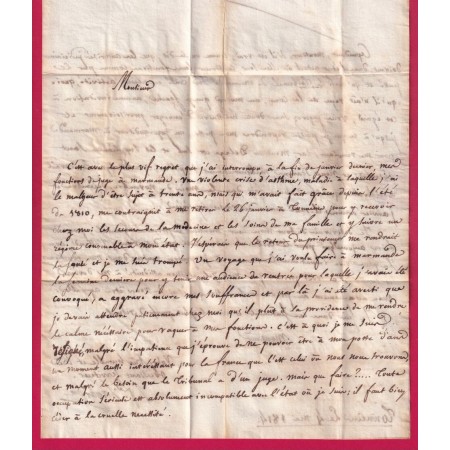 Monsieur
C'est avec le plus vif regret, que j'ai interrompu à la fin de janvier dernier, mes
fonctions de juge à marmande. Une violente crise d'asthme, maladie à laquelle j'ai
le malheur d'être sujet à trente ans, mais qui m'avait fait grâce depuis l'été
de 1810, me contraignit à me retirer le 26 janvier à Tonneins pour y recevoir
chez moi les secours de la médecine et les soins de ma famille et y suivre un
régime convenable à mon état. J'espérais que le retour du printemps me rendrait
la santé et je me suis trompé. Un voyage que j'ai voulu faire à marmande
la semaine dernière pour y une audience de rentrée pour laquelle j'avais été
convoqué, a aggravé encore mes souffrances et par là j'ai été averti que
je devais attendre patiemment chez moi qu'il plut à la providence de me rendre
le calme nécessaire pour vaquer à mes fonctions. C'est à quoi je me suis
résigné, malgré l'impatience que j'éprouve de ne pouvoir être à mon poste dans
un moment aussi intéressant pour la france que l'est celui où nous nous trouvons,
et malgré le besoin que le Tribunal a d'un juge. mais que faire?.... Toute
occupation sérieuse est absolument incompatible avec l'état où je suis; il faut bien
céder à la cruelle nécessité.
Tonneins le mai 1814